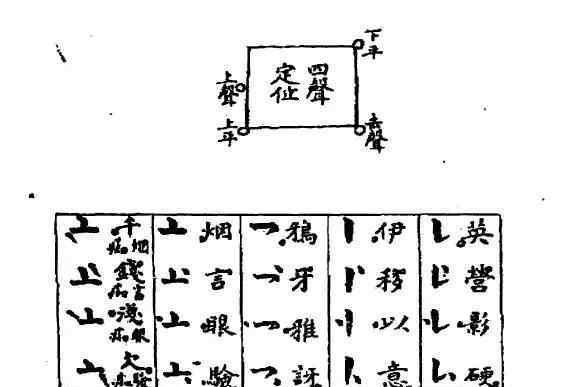 下平
四聲
定位
上聲
上平
去聲
英
營
影
硬
伊
移
以
意
鴉
牙
雅
訝
烟
言
眼
驗
千
錢
淺
欠